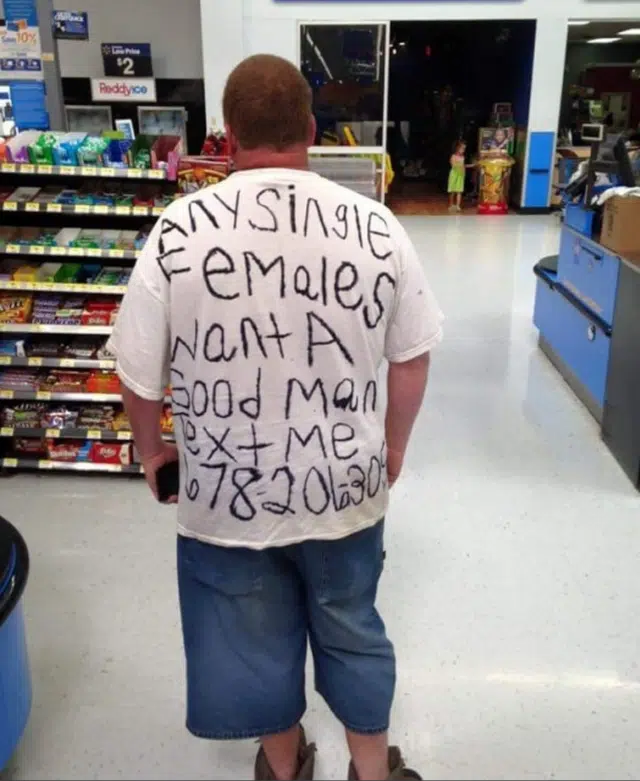 Save 10%
Low Price
$2
Reddyice
ANY SiNgle
FeMales
Want A
Good Man
Text Me
678-20630